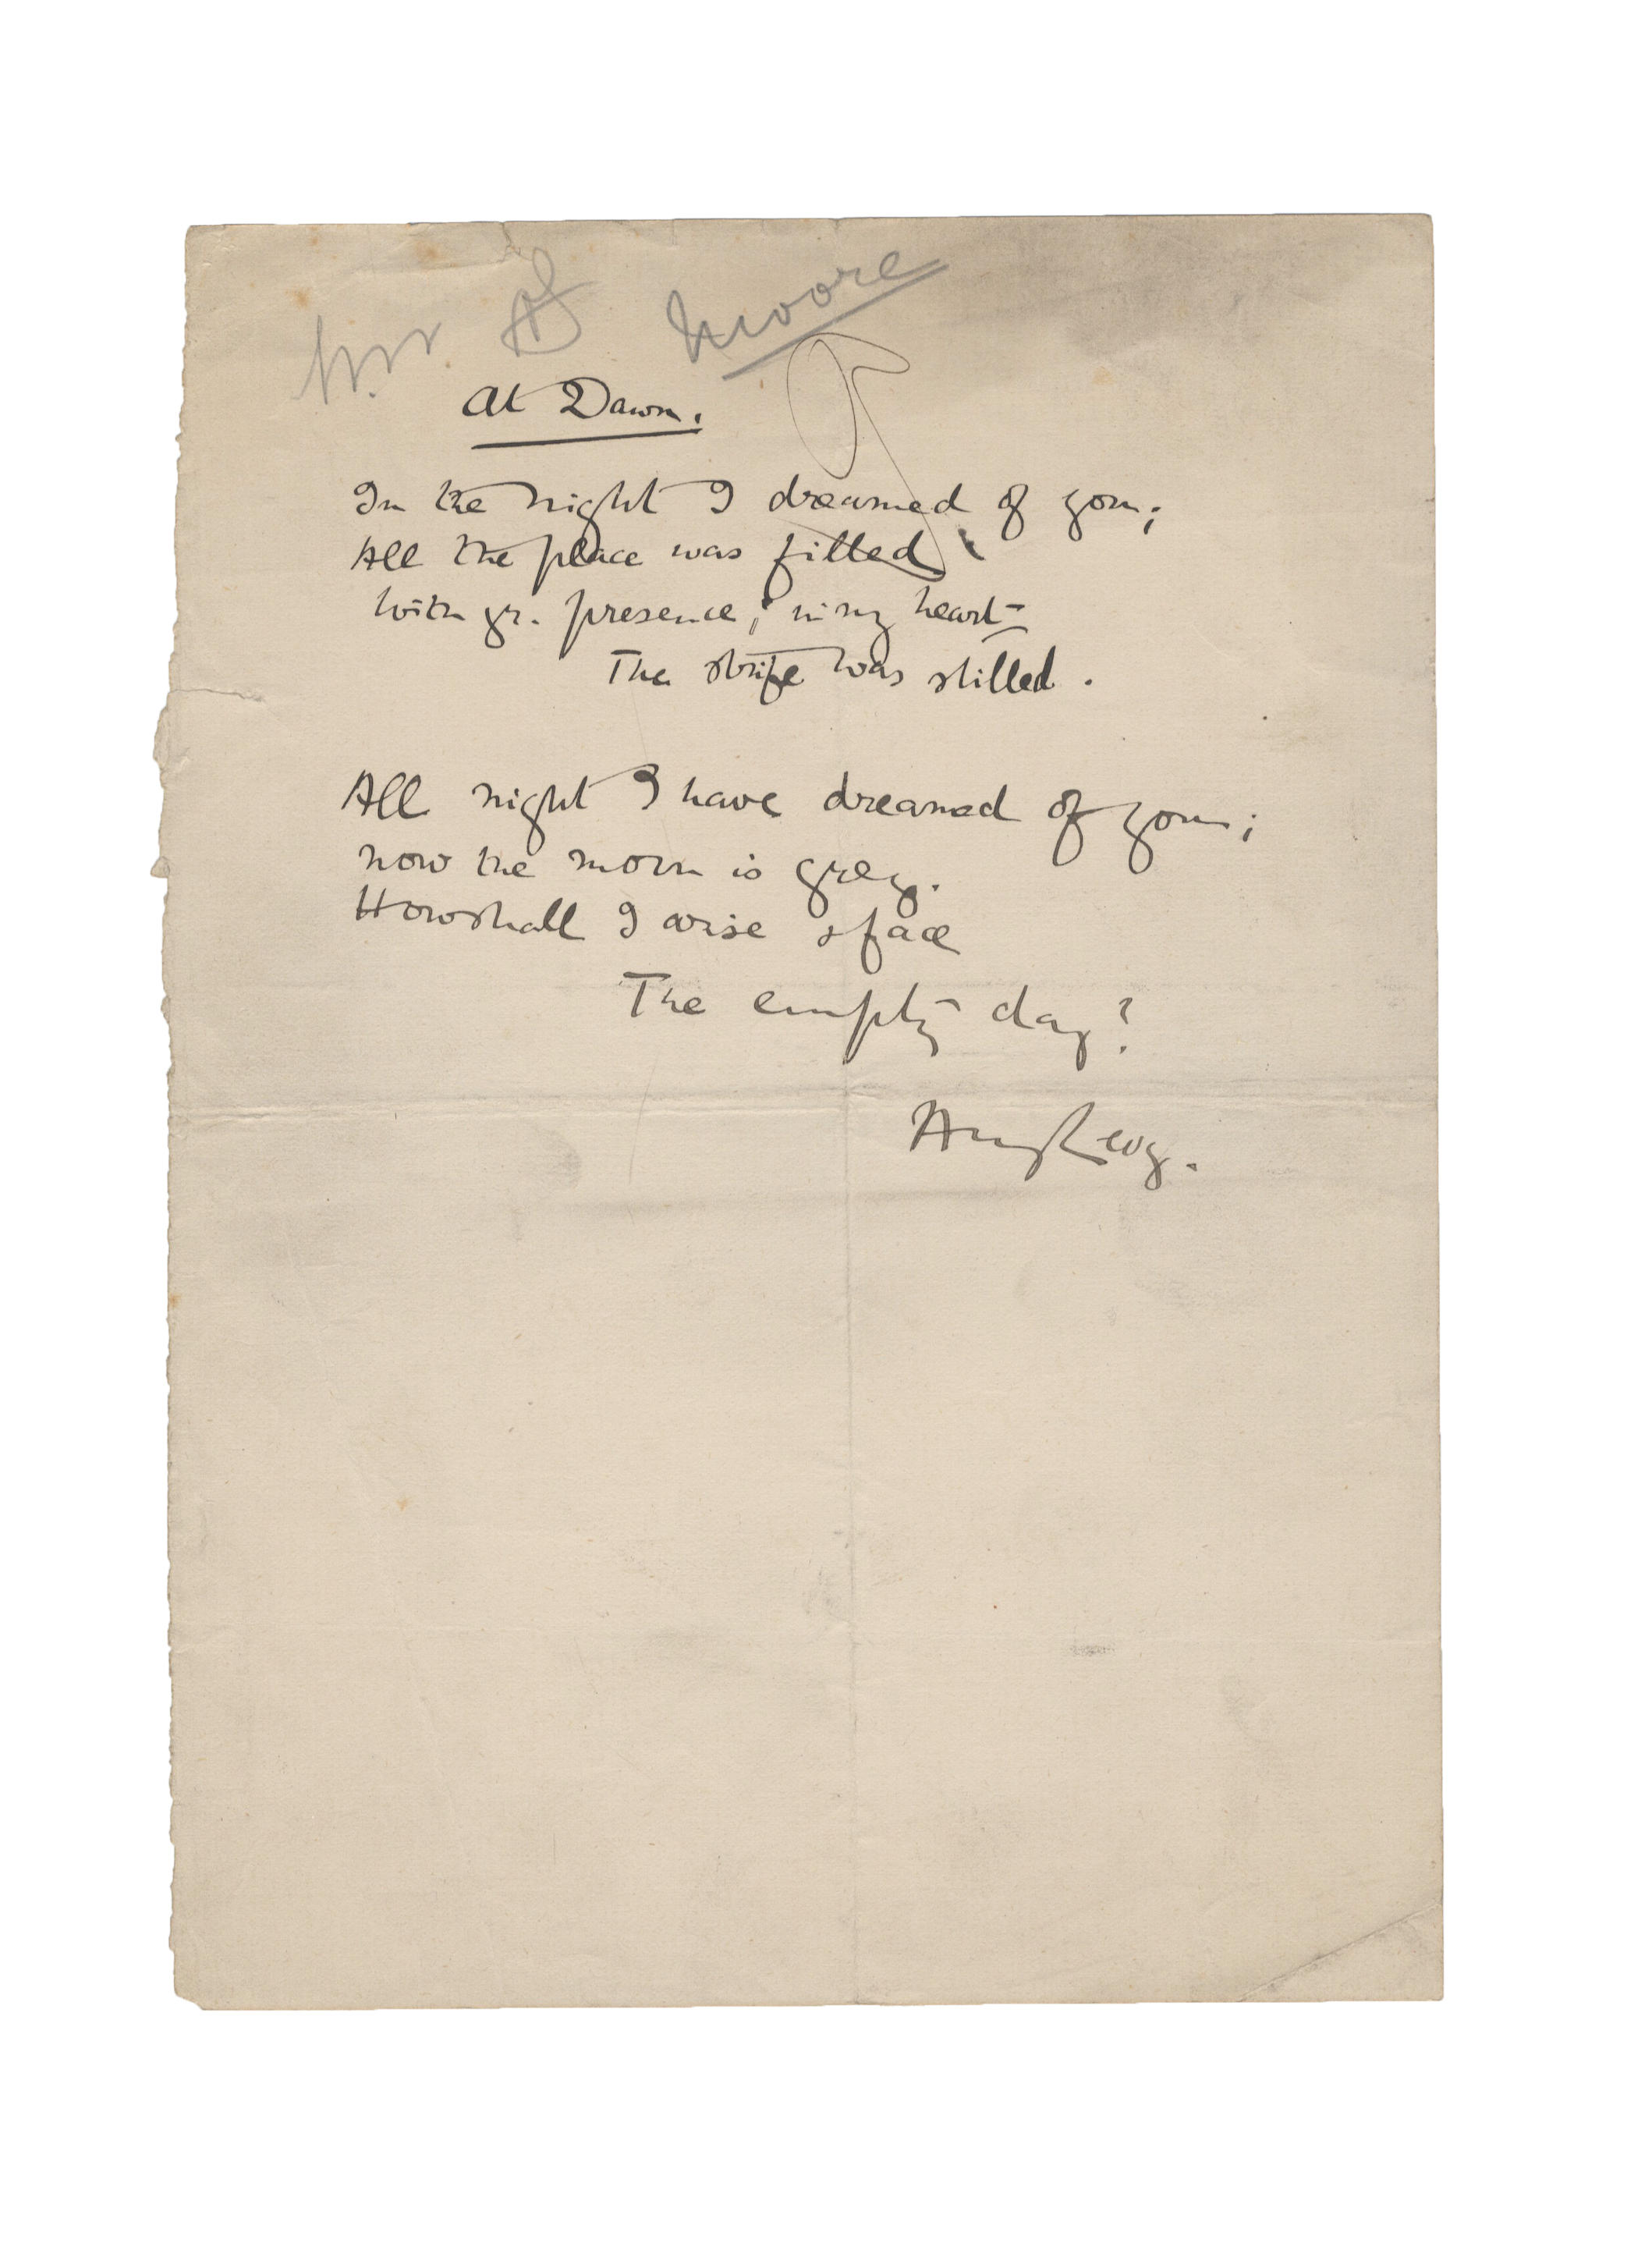 Mr. Moore
At Dawn.
In the night I dreamed of you;
All the place was filled
With yr. presence; in my heart
The strife was stilled.
All night I have dreamed of you;
now the morn is grey.
How shall I arise & face
The empty day?
Amy Levy.